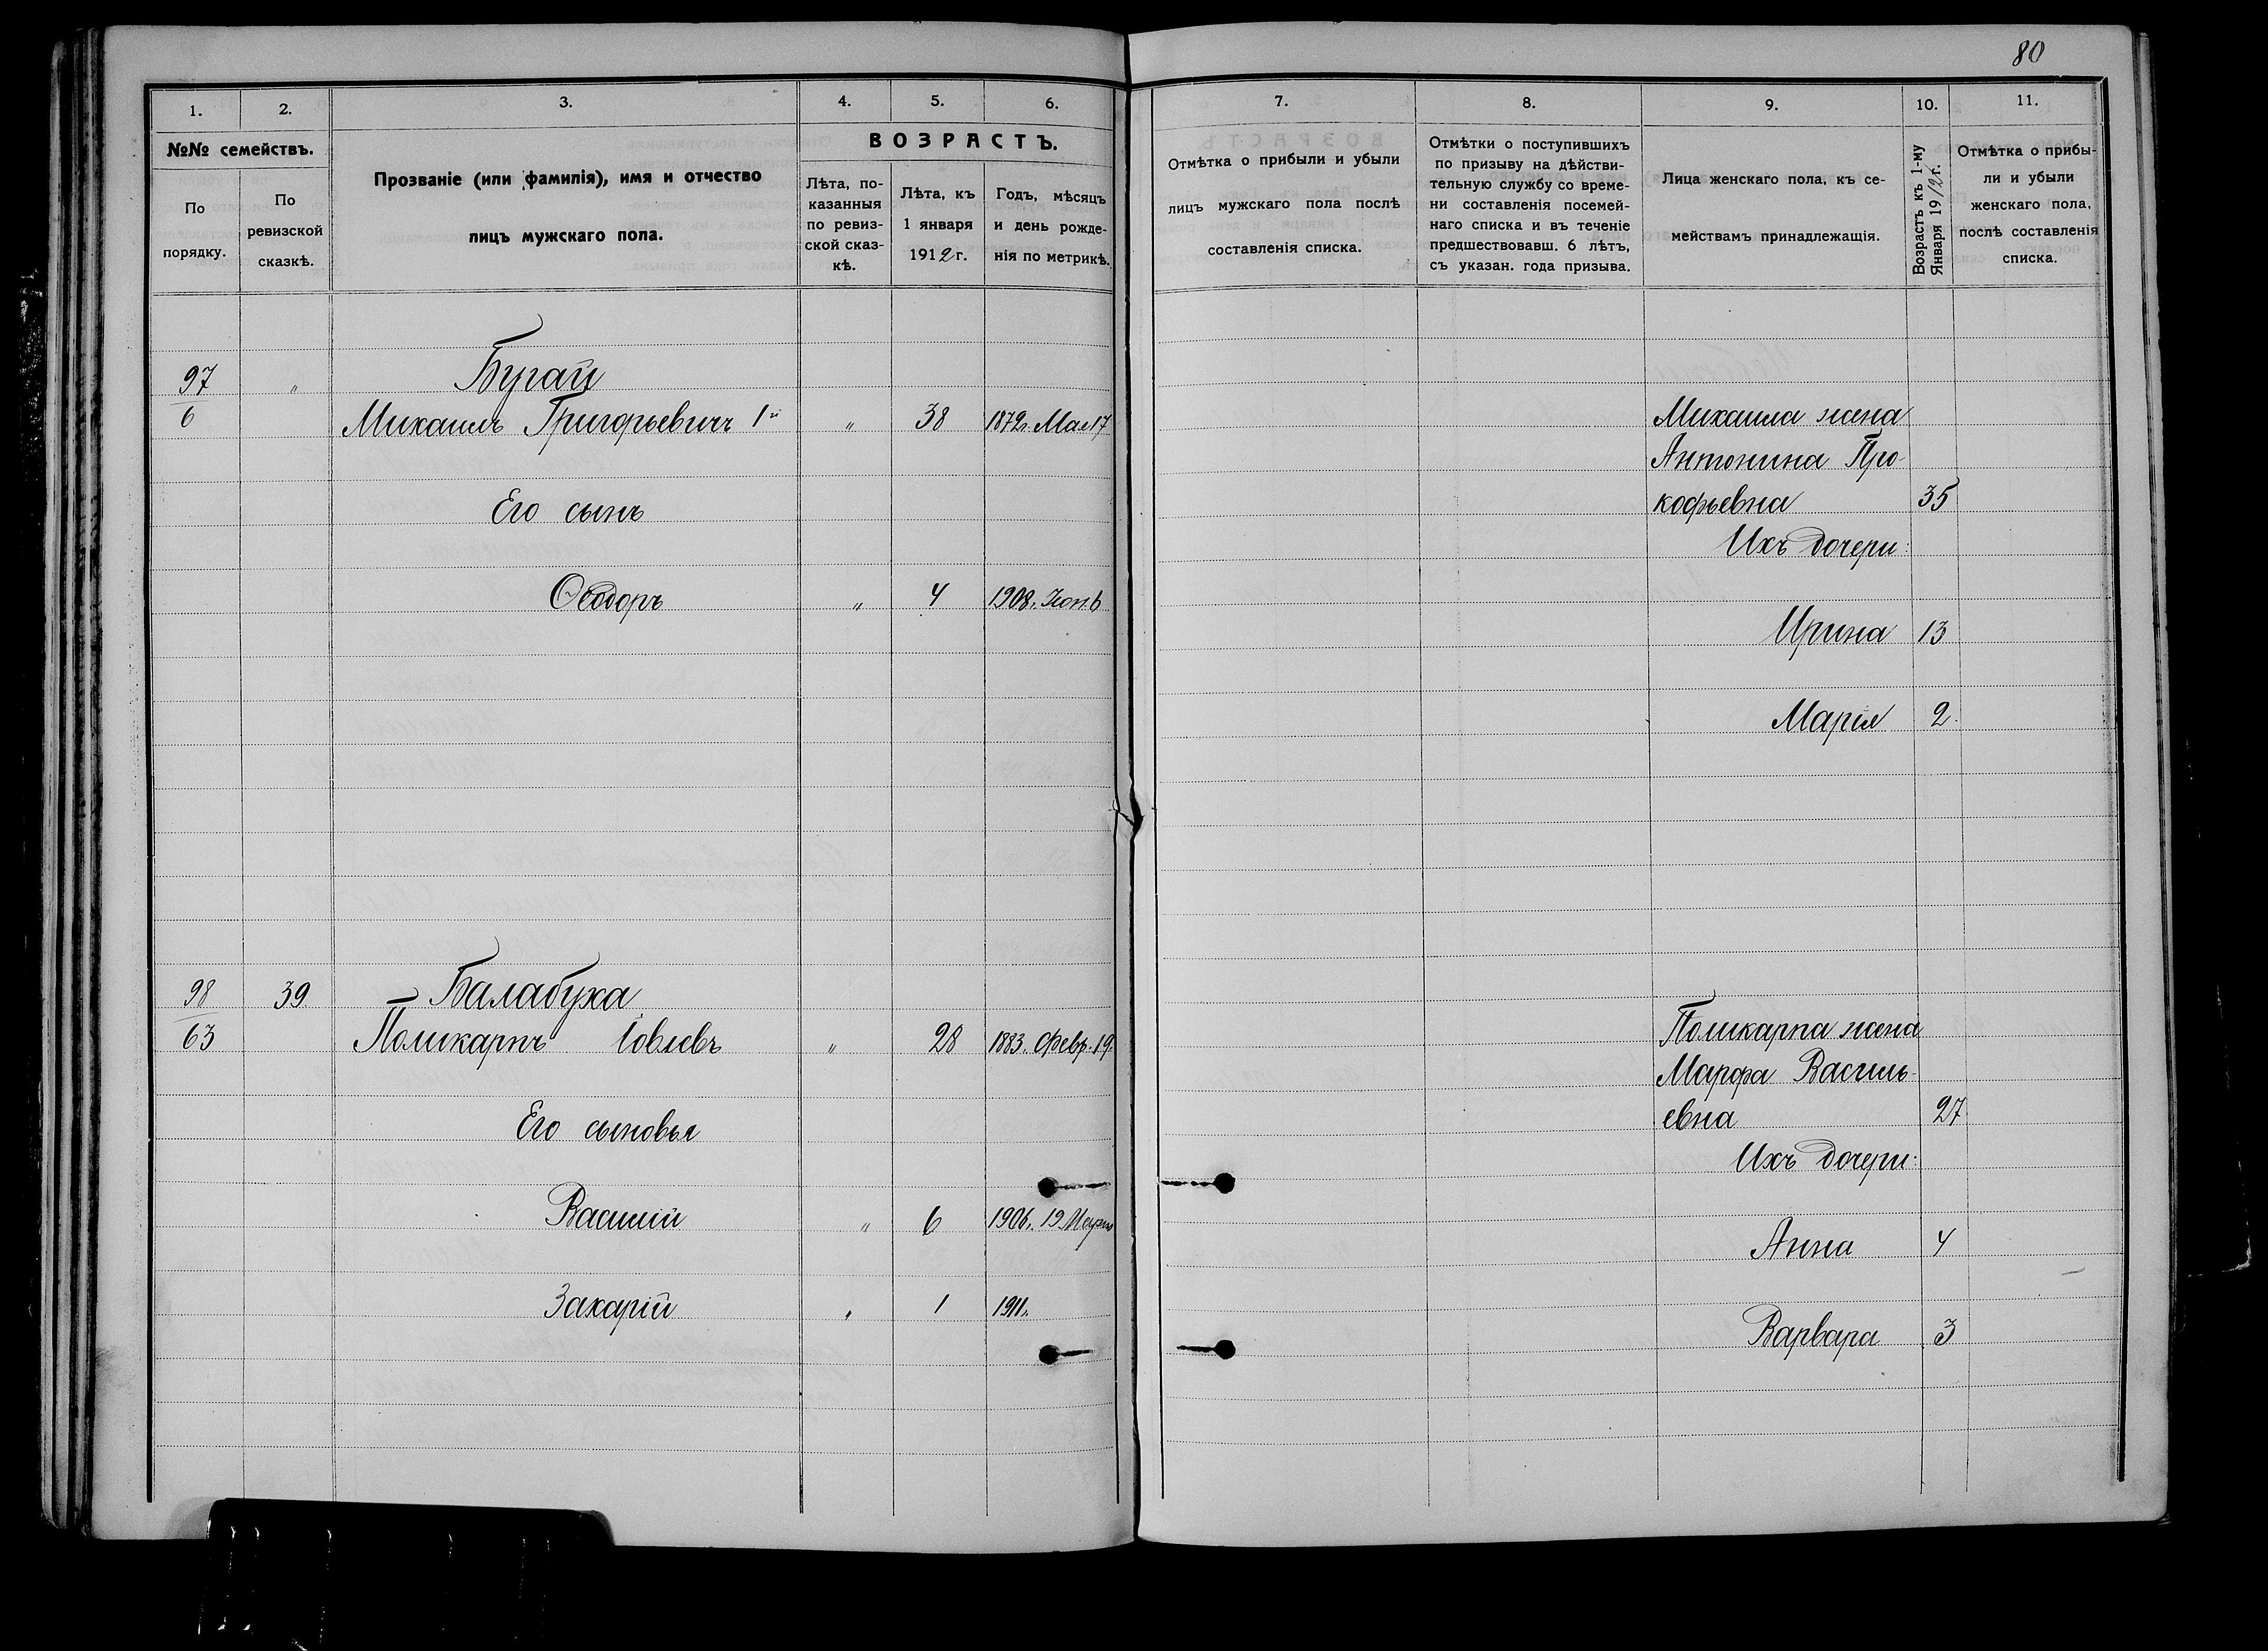 80
1. 2. 3. 4. 5. 6.
№№ семействъ.
По порядку.
По ревизской сказкѣ.
Прозваніе (или фамилія), имя и отчество
лицъ мужскаго пола.
ВОЗРАСТЪ.
Лѣта, по-
казанныя
по ревиз-
ской сказ-
кѣ.
Лѣта, къ
1 января
1912 г.
Годъ, мѣсяцъ
и день рожде-
нія по метрикѣ.
97 „ Бугай
6 Михаилъ Григорьевичъ 1й „ 38 1872г. Мая 17
Его сынъ
Ѳеодоръ „ 4 1908г. Іюн. 6
98 39 Балабуха
63 Поликарпъ Іовлевъ „ 28 1883г. Февр. 19.
Его сыновья
Василій „ 6 1906г. 19 Марта
Захарій „ 1 1911г.
7. 8. 9. 10. 11.
Отмѣтка о прибыли и убыли
лицъ мужскаго пола послѣ
составленія списка.
Отмѣтки о поступившихъ
по призыву на дѣйстви-
тельную службу со време-
ни составленія посемей-
наго списка и въ теченіе
предшествовавш. 6 лѣтъ,
съ указан. года призыва.
Лица женскаго пола, къ се-
мействамъ принадлежащія.
Возрастъ къ 1-му
Января 1912 г.
Отмѣтка о прибы-
ли и убыли
женскаго пола,
послѣ составленія
списка.
Михаила жена
Антонина Про-
кофьевна 35
Ихъ дочери:
Ирина 13
Марія 2.
Поликарпа жена
Марфа Василь-
евна 27
Ихъ дочери:
Анна 4
Варвара 3